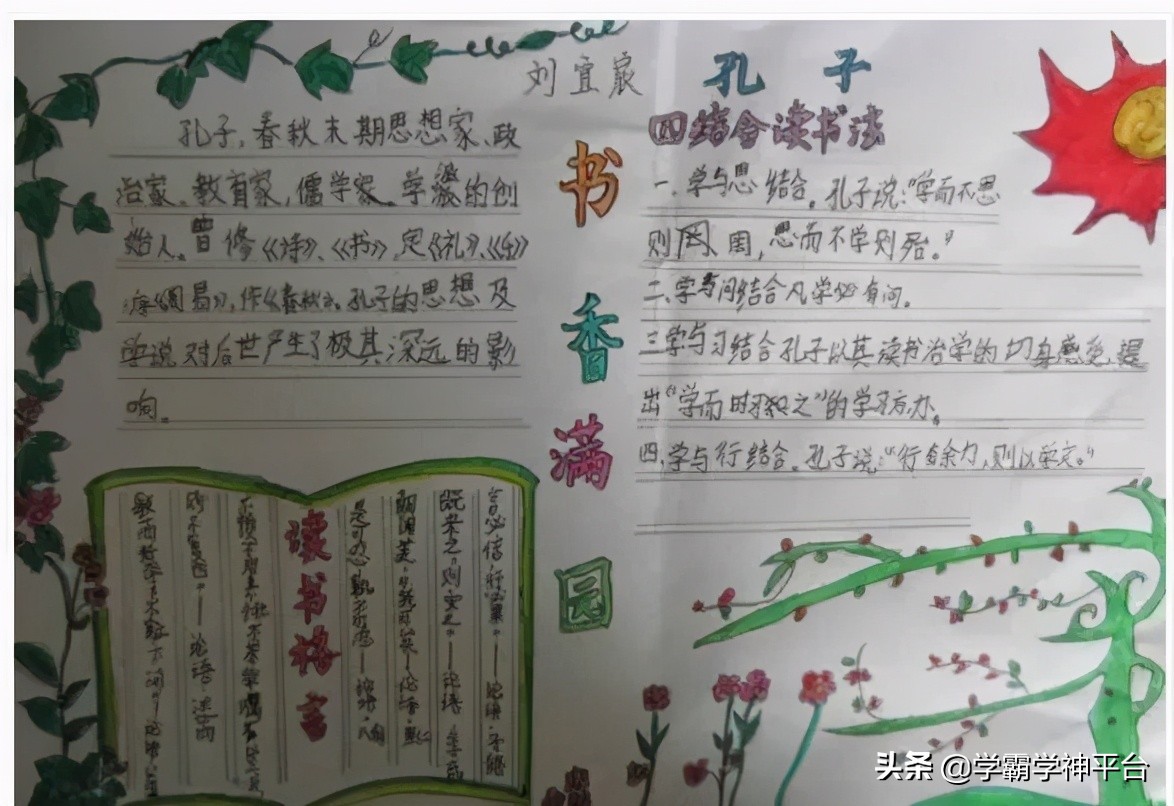 刘宜宸
孔子
四结合读书法
书香满园
孔子,春秋末期思想家、政
治家、教育家,儒学家、学派的创
始人。曾修《诗》、《书》,定《礼》、《乐》
序《周易》,作《春秋》。孔子的思想及
学说对后世产生了极其深远的影
响。
一.学与思结合。孔子说:“学而不思
则罔,思而不学则殆。”
二.学与问结合凡学必有问。
三学与习结合孔子以其读书治学的切身感受,提
出“学而时习之”的学习方办。
四,学与行结合。孔子说:“行有余力,则以学文。”
读书格言
言必信,行必果。——论语·子路
既来之,则安之。——论语·季氏
是可忍,孰不可忍——论语·八佾
——论语·述而
敏而好学,不耻下问
头条 @学霸学神平台